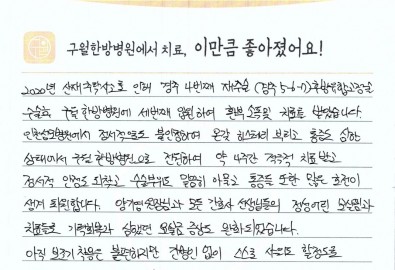 구월한방병원에서 치료, 이만큼 좋아졌어요!
2020년 산재 추락사고로 인해 경추 4번째 재수술 (경추 5-6-7)
수술후 구월한방병원에 세번째 입원하여 및 치료를 받았습니다.
인천성모병원에서 정서적으로도 불안정하여 온갖 히스테리 부리고 통증도 심한
상태에서 구월한방병원으로 전원하여 약 4주간 적극적 치료받고
정서적 안정도 되찾고 수술부위도 말끔히 아물고 통증들 또한 많은 호전이
생겨 퇴원합니다. 모든 간호사 선생님들의 정성어린 보살핌과
치료들로 기력회복과 심했던 증상도 완화되었습니다.
아직 보조기 착용은 불편하지만 없이 스스로 할정도로